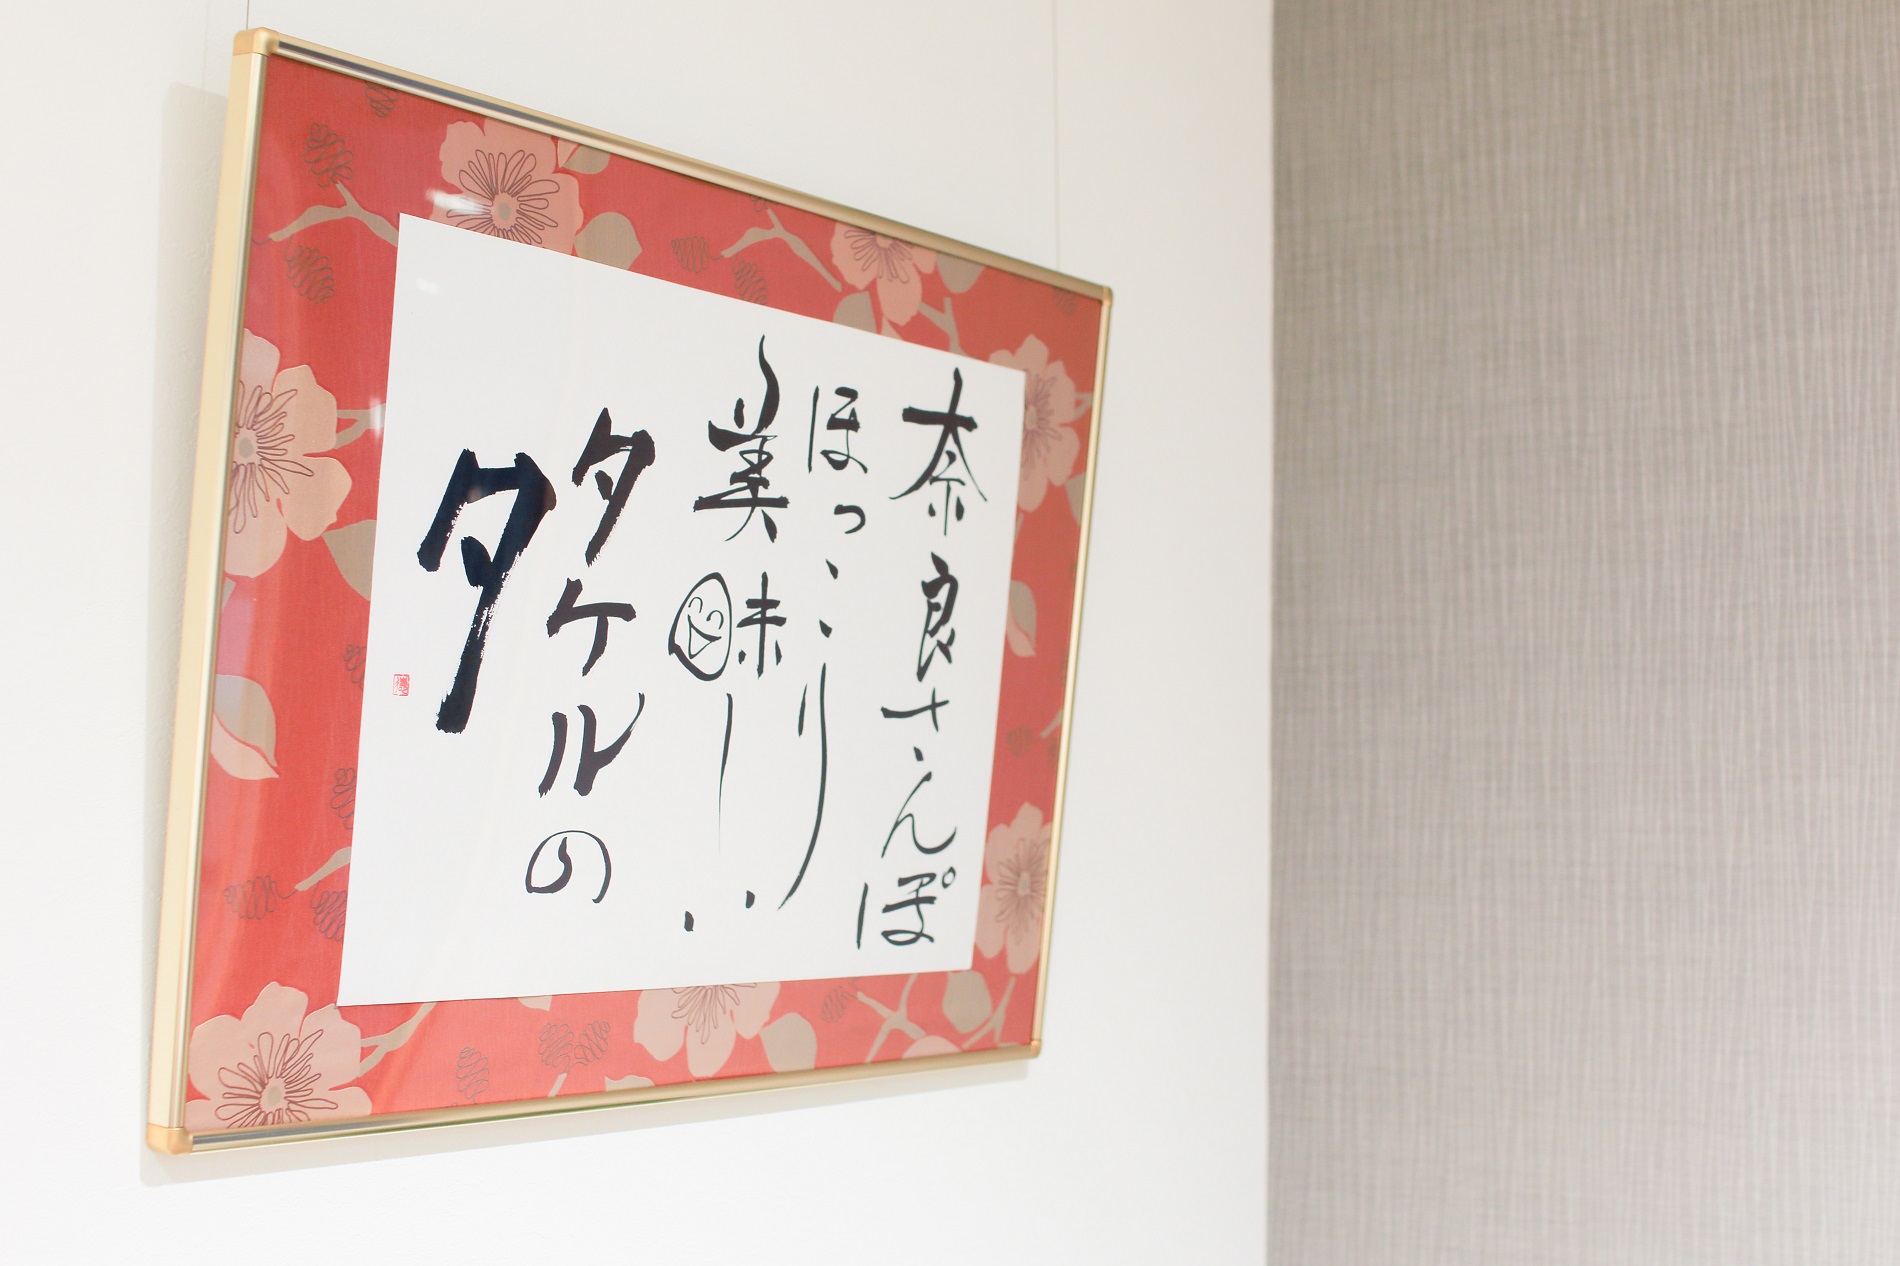 奈良さんぽ
ほっこり
美味しい
タケルの
夕